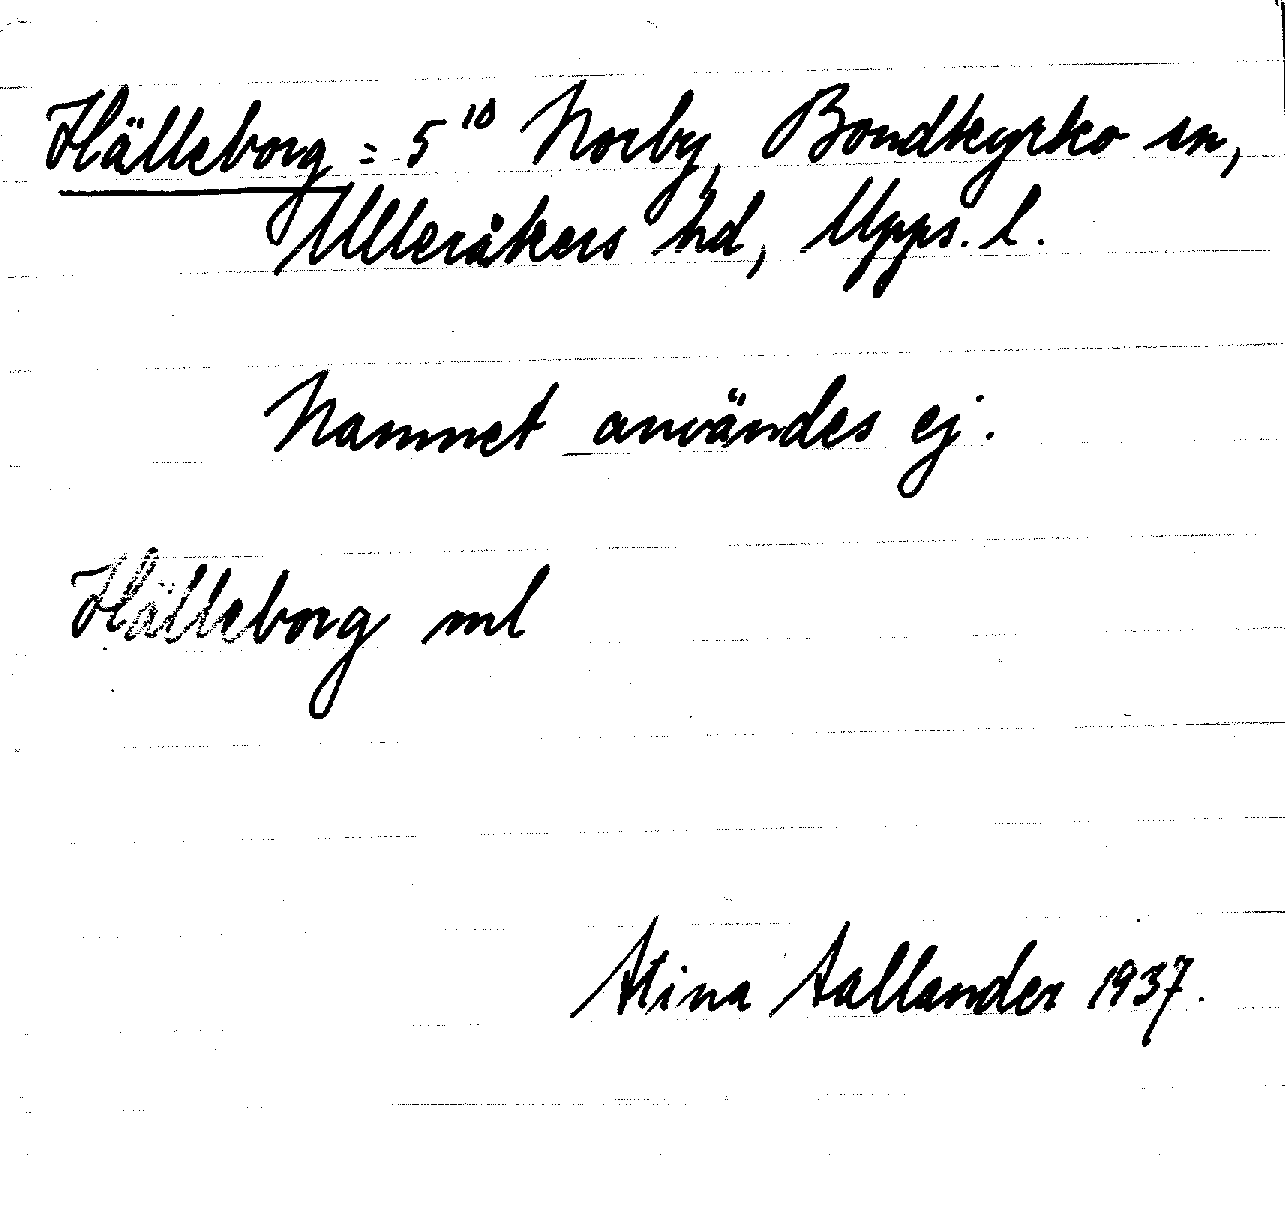 Hälleborg = 5¹⁰ Norby, Bondkyrko sn,
Ulleråkers hd, Upps. l.
Namnet användes ej.
Hälleborg ml
Stina Sallander 1937.